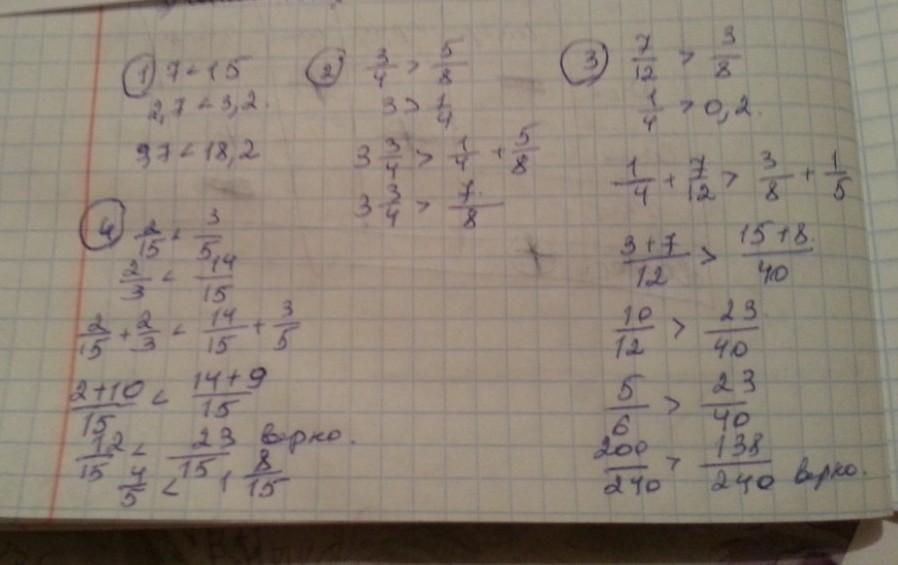 ① 7 < 15
2,7 < 3,2.
97 < 18,2
② 3/4 > 5/8
3 > 1/4
3 3/4 > 1/4 + 5/8
3 3/4 > 7/8
③ 7/12 > 3/8
1/4 > 0,2.
1/4 + 7/12 > 3/8 + 1/5
3+7/12 > 15+8/40
10/12 > 23/40
5/6 > 23/40
200/240 > 138/240 верно.
④ 2/15 < 3/5
2/3 < 14/15
2/15 + 2/3 < 14/15 + 3/5
2+10/15 < 14+9/15
12/15 < 23/15 верно.
4/5 < 1 8/15